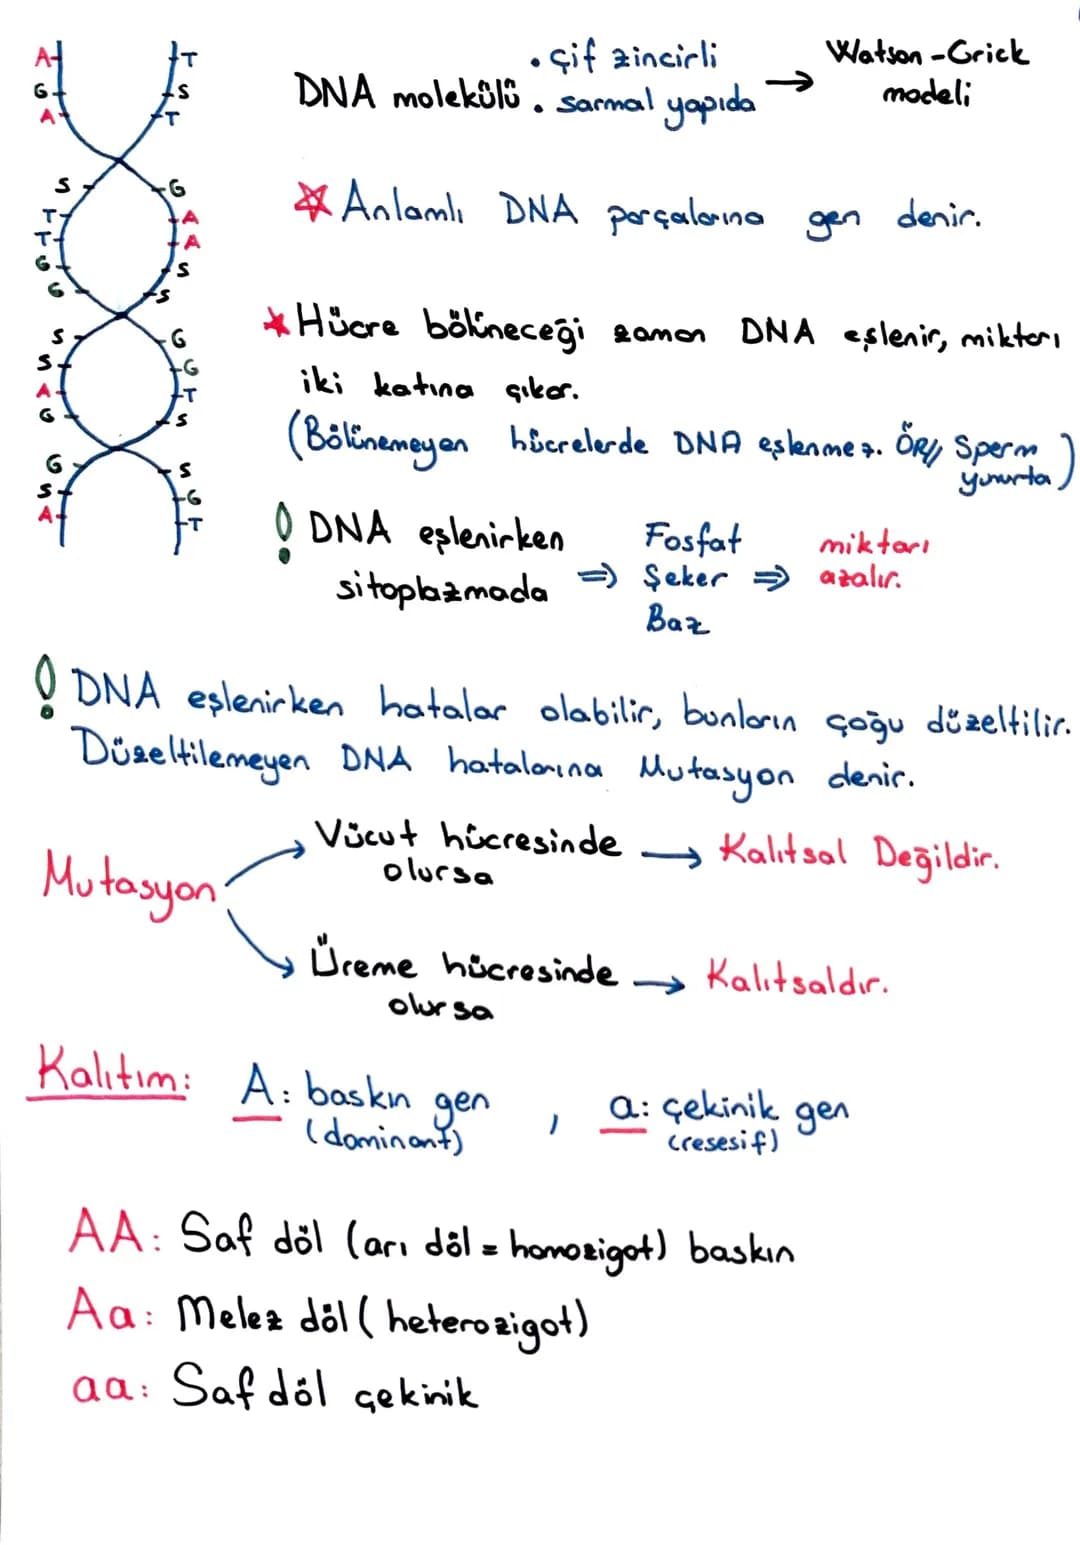 A T
G S
A T
S G
T A
T A
G S
G S
S G
S G
A T
G S
G S
S G
A T
DNA molekülü
. çif zincirli
. sarmal yapıda
→ Watson-Crick
modeli
Anlamlı DNA parçalarına gen denir.
Hücre bölüneceği zaman DNA eşlenir, miktarı
iki katına çıkar.
(Bölünemeyen hücrelerde DNA eşlenmez. ÖR// Sperm
yumurta)
! DNA eşlenirken
sitoplazmada
⇒ Fosfat
Şeker
Baz
⇒ miktarı
azalır.
! DNA eşlenirken hatalar olabilir, bunların çoğu düzeltilir.
Düzeltilemeyen DNA hatalarına Mutasyon denir.
Mutasyon
→ Vücut hücresinde
olursa
→ Kalıtsal Değildir.
→ Üreme hücresinde
olursa
→ Kalıtsaldır.
Kalıtım: A: baskın gen , a: çekinik gen
(dominant) (resesif)
AA: Saf döl (arı döl = homozigot) baskın
Aa: Melez döl ( heterozigot)
aa: Saf döl çekinik